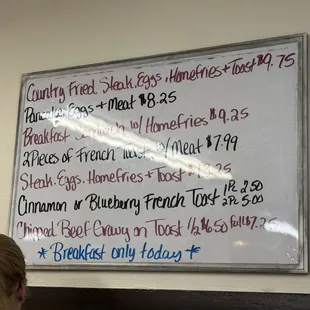 Country Fried Steak, Eggs, Homefries + Toast $9.75
Pancakes Eggs + Meat $8.25
Breakfast Sandwich w/ Homefries $9.25
2 Pieces of French Toast w/ Meat $7.99
Steak, Eggs, Homefries + Toast
Cinnamon or Blueberry French Toast 1Pc 2.50
2Pc 5.00
Chipped Beef Gravy on Toast 1/2 $6.50 full $7.25
* Breakfast only today *